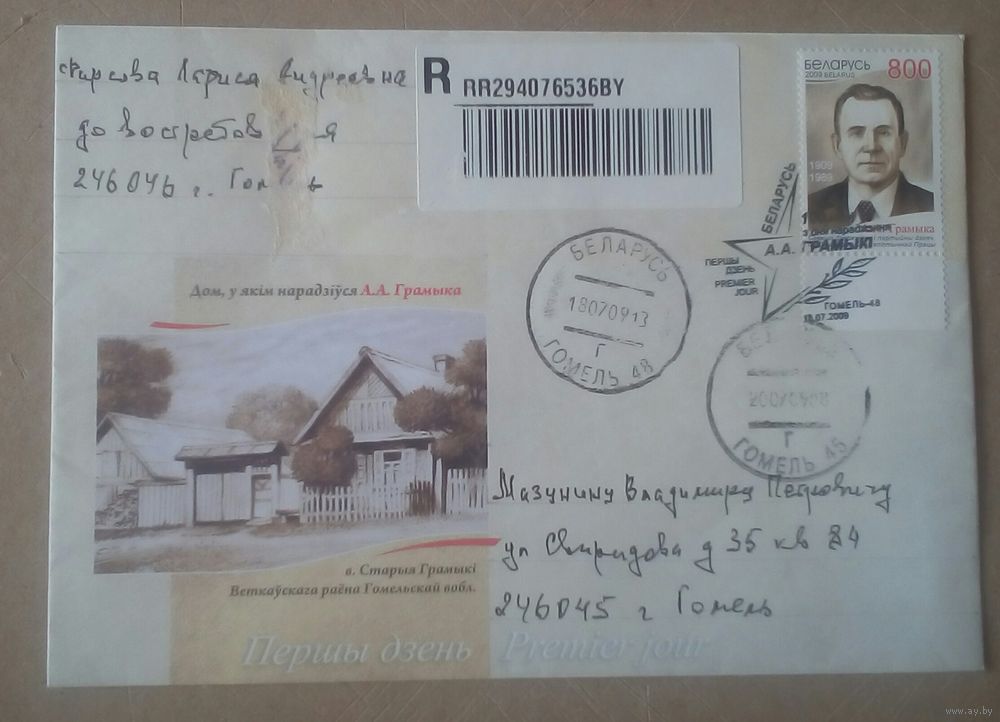 Фирсова Лариса Андреевна
до востребов я
246046 г. Гомель
R RR294076536BY
БЕЛАРУСЬ 800
2009 BELARUS
1909
1989
Грамыка
БЕЛАРУСЬ
з дня нараджэння
А.А. ГРАМЫКІ
ПЕРШЫ
ДЗЕНЬ
PREMIER
JOUR
ГОМЕЛЬ-48
18.07.2009
БЕЛАРУСЬ
18070913
Г
ГОМЕЛЬ 48
Г
ГОМЕЛЬ 45
Дом, у якім нарадзіўся А.А. Грамыка
в. Старыя Грамыкі
Веткаўскага раёна Гомельскай вобл.
Мазунину Владимиру Петровичу
ул Свиридова д 35 кв 84
246045 г Гомель
Першы дзень Premier jour
www.ay.by